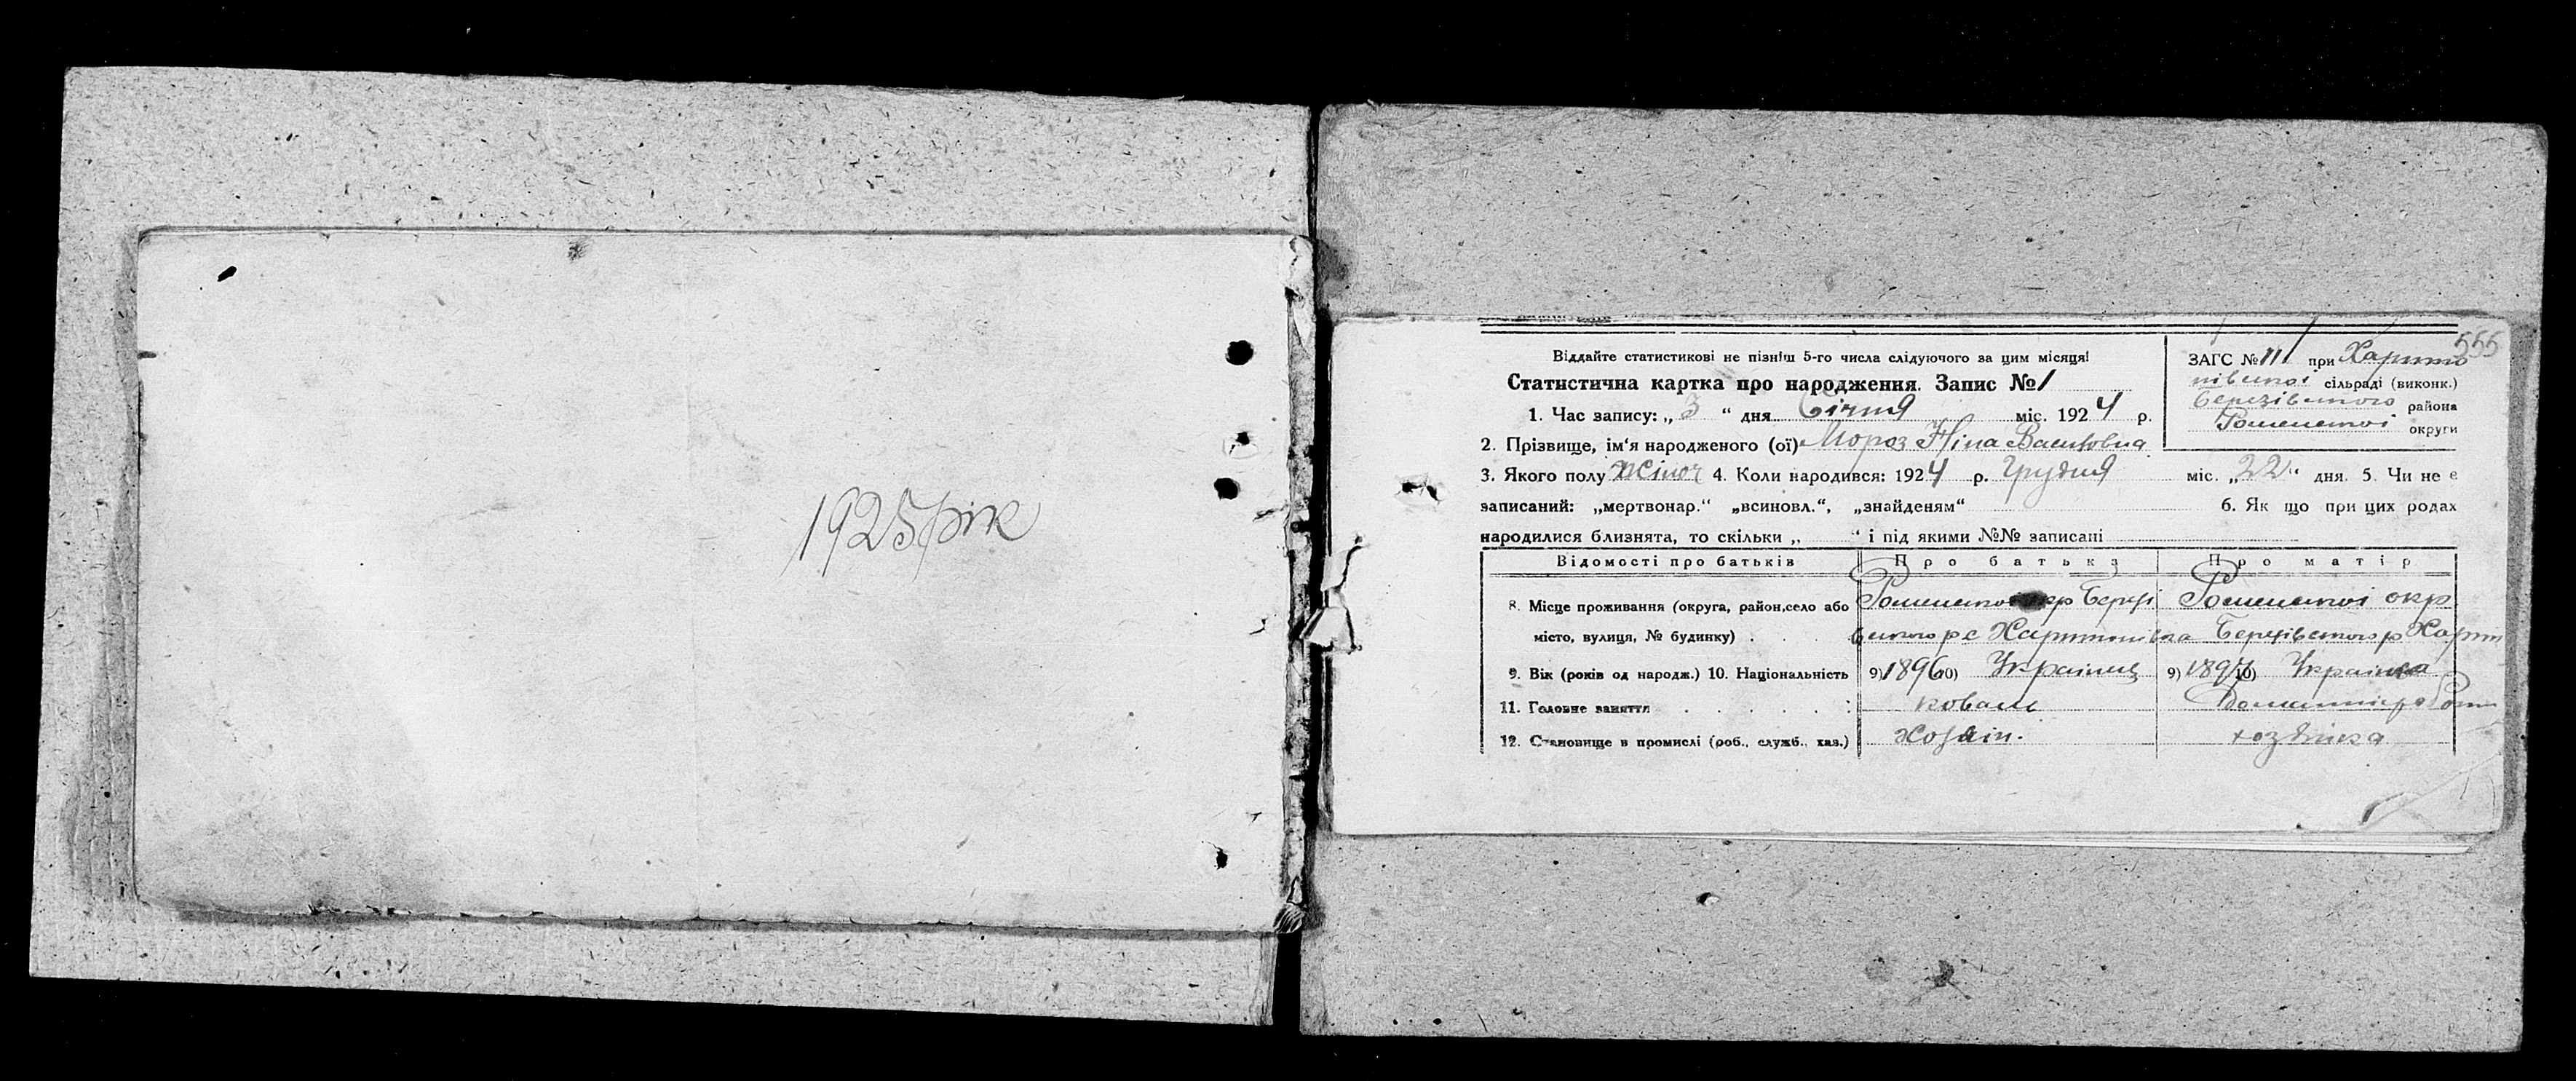 1925 рік
555
Віддайте статистикові не пізніш 5-го числа слідуючого за цим місяця!
Статистична картка про народження. Запис № 1
1. Час запису: „ 3 “ дня Січня міс. 1924 р.
ЗАГС № 111 при Харито
півської сільраді (виконк.)
Березівського района
Роменської округи
2. Прізвище, ім‘я народженого (ої) Мороз Ніна Васильовна
3. Якого полу Жіноч 4. Коли народився: 1924 р. Грудня міс. „ 22 “ дня. 5. Чи не є
записаний: „мертвонар.“ „всиновл.“, „знайденям“ 6. Як що при цих родах
народилися близнята, то скільки „ “ і під якими №№ записані
Відомості про батьків Про батька Про матір
8. Місце проживання (округа, район, село або Роменської окр Березі Роменської окр
місто, вулиця, № будинку) вського р с Харитонівка Березівського р Харит
9. Вік (років од народж.) 10. Національність 9) 1896 10) Українец 9) 1897 10) Українка
11. Головне заняття коваль
12. Становище в промислі (роб., служб., хаз.) Хозяін. хозяйка